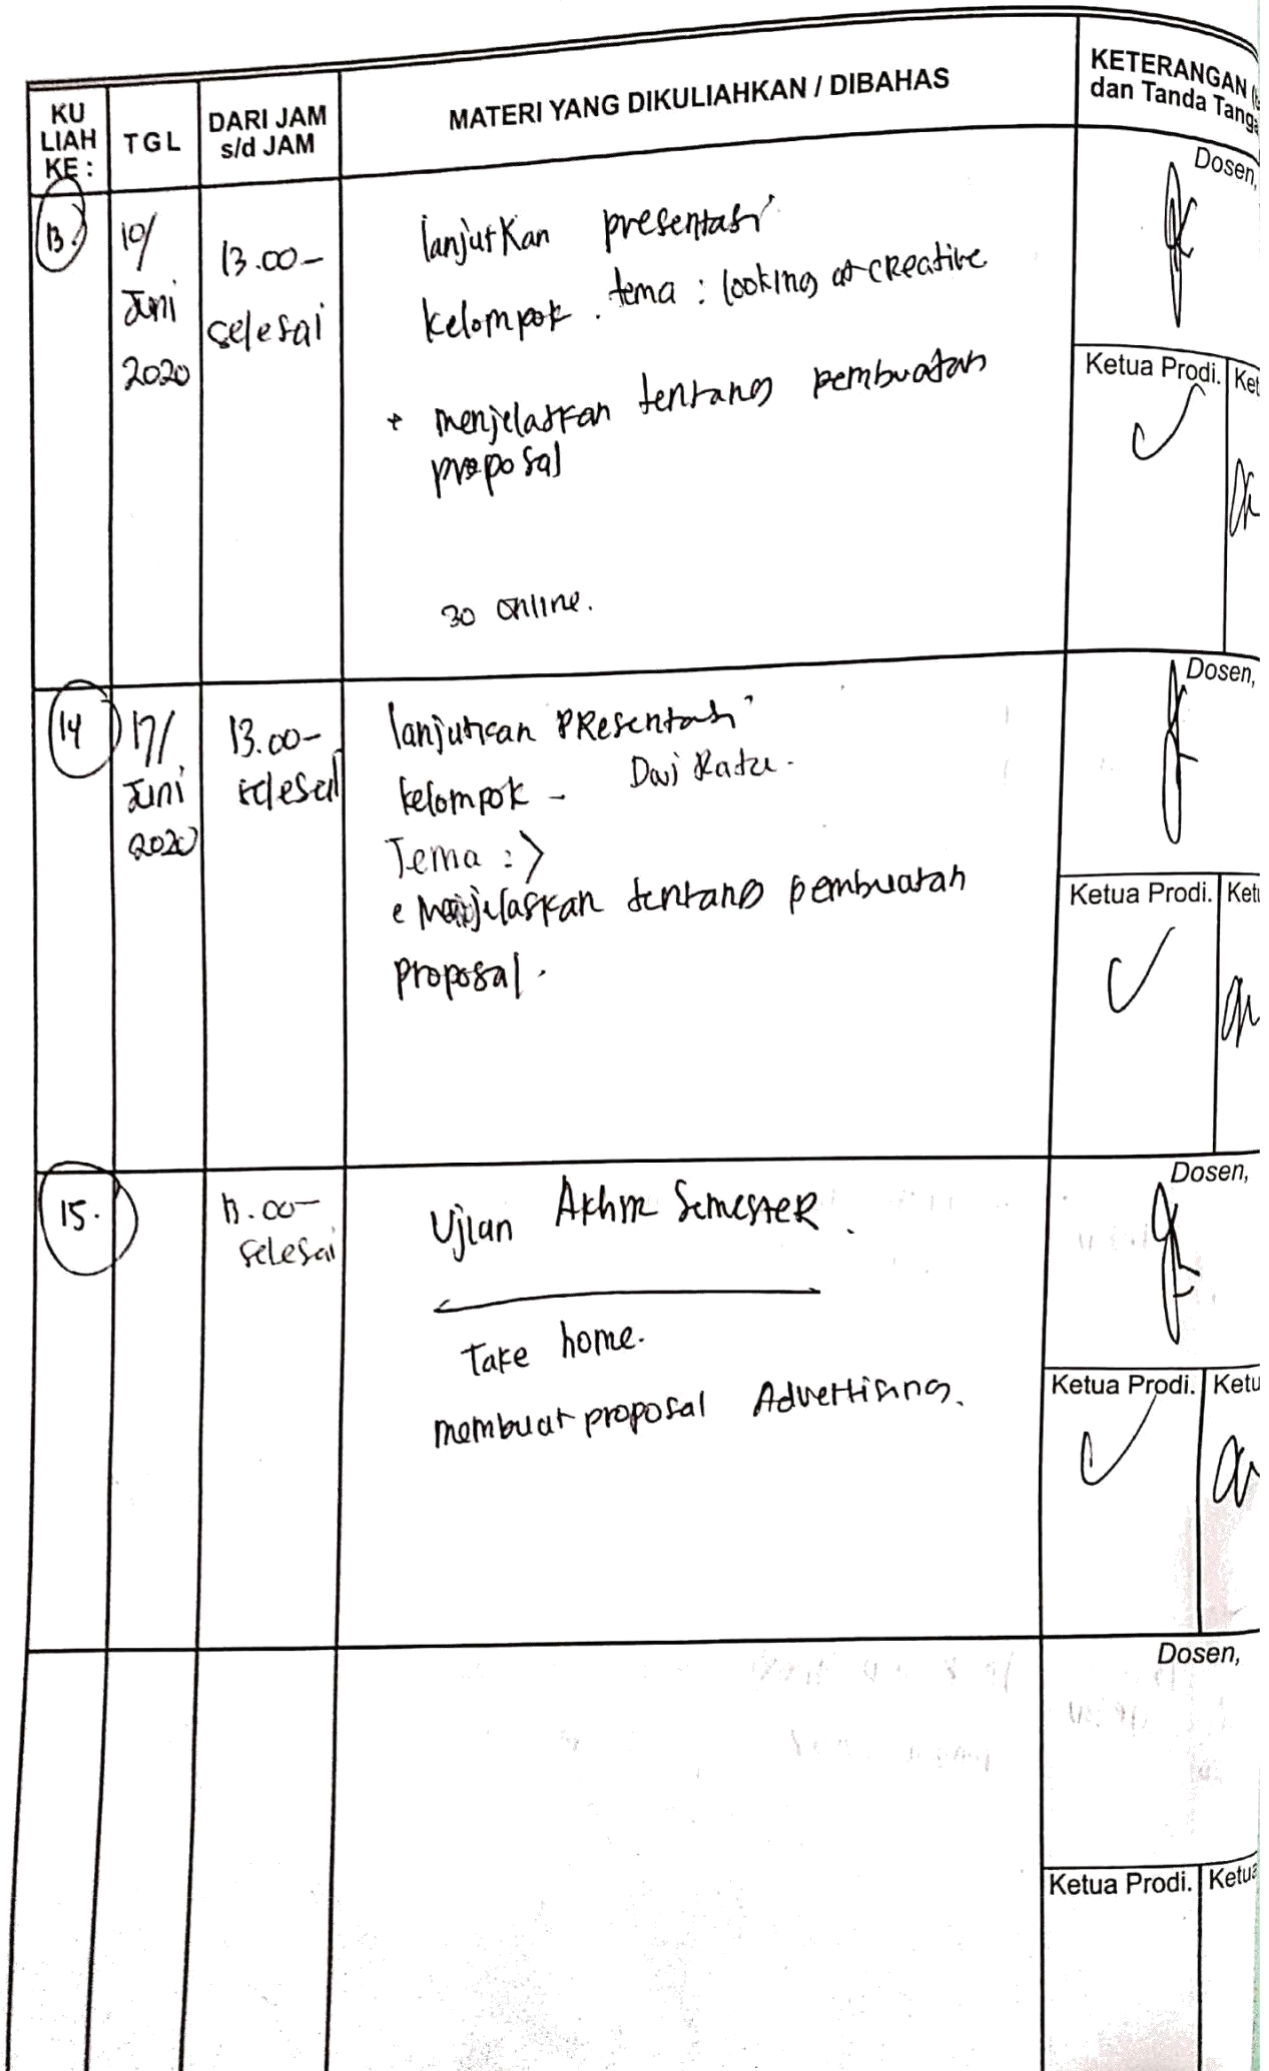 KU LIAH KE :
TGL
DARI JAM s/d JAM
MATERI YANG DIKULIAHKAN / DIBAHAS
KETERANGAN
dan Tanda Tanga
13.
10/ Juni 2020
13.00 - selesai
lanjutkan presentasi
kelompok. tema : looking at creative
+ menjelaskan tentang pembuatan
proposal
30 online.
Dosen,
Ketua Prodi.
Ket
14
17/ Juni 2020
13.00 - selesai
lanjutkan PResentasi
kelompok - Dwi Ratu.
Tema :
menjelaskan tentang pembuatan
proposal.
Dosen,
Ketua Prodi.
Ketu
15.
selesai
Ujian Akhir SemesteR.
Take home.
membuat proposal Advertising.
Dosen,
Ketua Prodi.
Ketu
Dosen,
Ketua Prodi.
Ketua